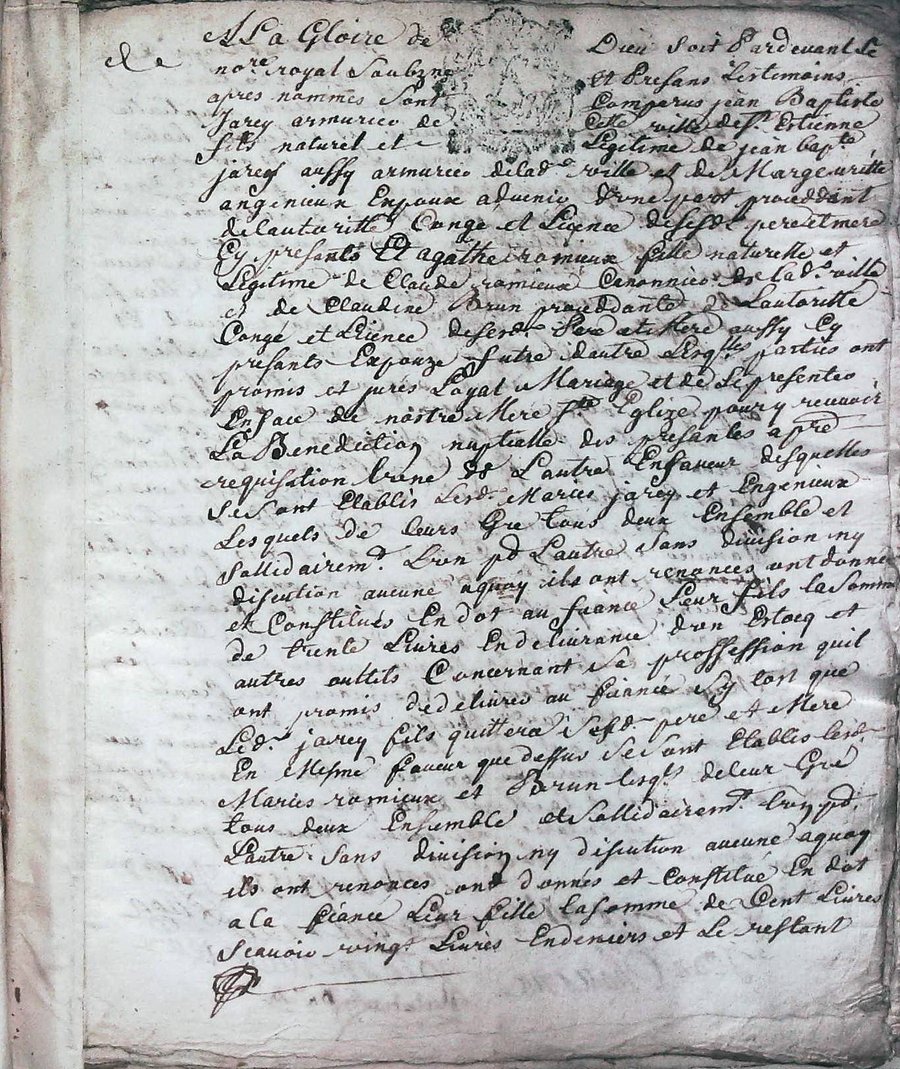 A La Gloire de Dieu soit Pardevant Le
nore royal Soubzné Et Presans Les temoins
apres nommés Sont Comparus jean Baptiste
Jarey armurier de Cette ville de St Estienne
fils naturel et Legitime de jean bapte
jarey aussy armurier delade ville et de Margueritte
angenieux Expoux advenir d'une part proceddant
de lautoritté Congé et Licence de sesd pere et mere
Cy presants Et agathe romieux fille naturelle et
Legitime de Claude romieux Canonnier de lade ville
et de Claudine Brun proceddante de Lautoritté
Congé et Licence de sesd Pere et Mere aussy Cy
presants Expouze future dautre Lesqlles parties ont
promis et jurés Loyal Mariage et de Se presenter
En face de nostre Mere Ste Eglize pour y recevoir
La Benediction nuptielle des presantes a pre
requisition Lune de Lautre En faveur desquelles
se sont Etablis Lesd Mariés jarey et Engenieux
Lesquels de leurs Gré tous deux Ensemble et
Sollidairemt Lun pd Lautre Sans division ny
discution aucune aquoy ils ont renoncés ont donné
et Constitués En dot au fiancé Leur fils la Somme
de trente Livres En delivrance d'un Estocq et
autres outtils Concernant Sa proffession quil
ont promis de delivrer au fiancé Lors que
Led. jarey fils quittera Sesd. pere et Mere
En Mesme faveur que dessus se sont Etablis Lesd
Mariés romieux et Brun lesqls de leur Gré
tous deux Ensemble et Sollidairemt Lun pd.
Lautre Sans division ny discution aucune aquoy
ils ont renoncés ont donnés et Constitué En dot
a la fiancé Leur fille la Somme de Cent Livres
Scavoir vingt Livres En deniers et Le restant